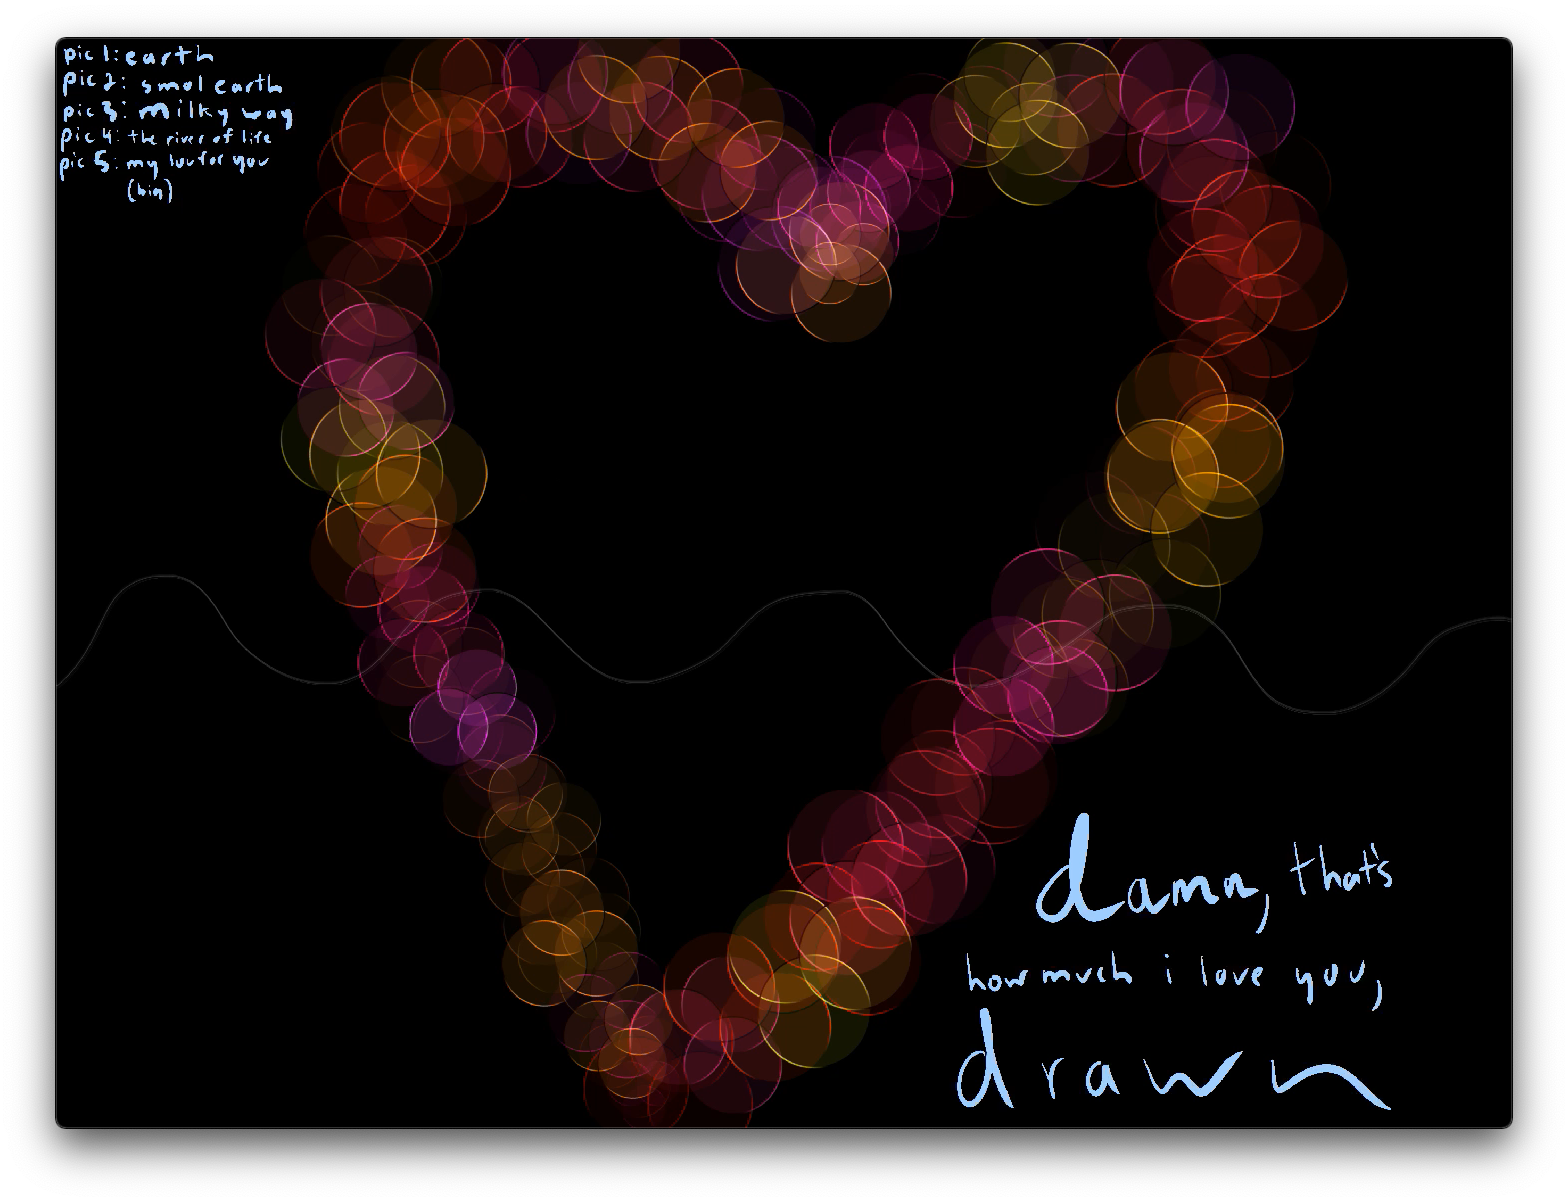 pic 1: earth
pic 2: smol earth
pic 3: milky way
pic 4: the river of life
pic 5: my luv for you
(big)
damn, that's
how much i love you,
drawn